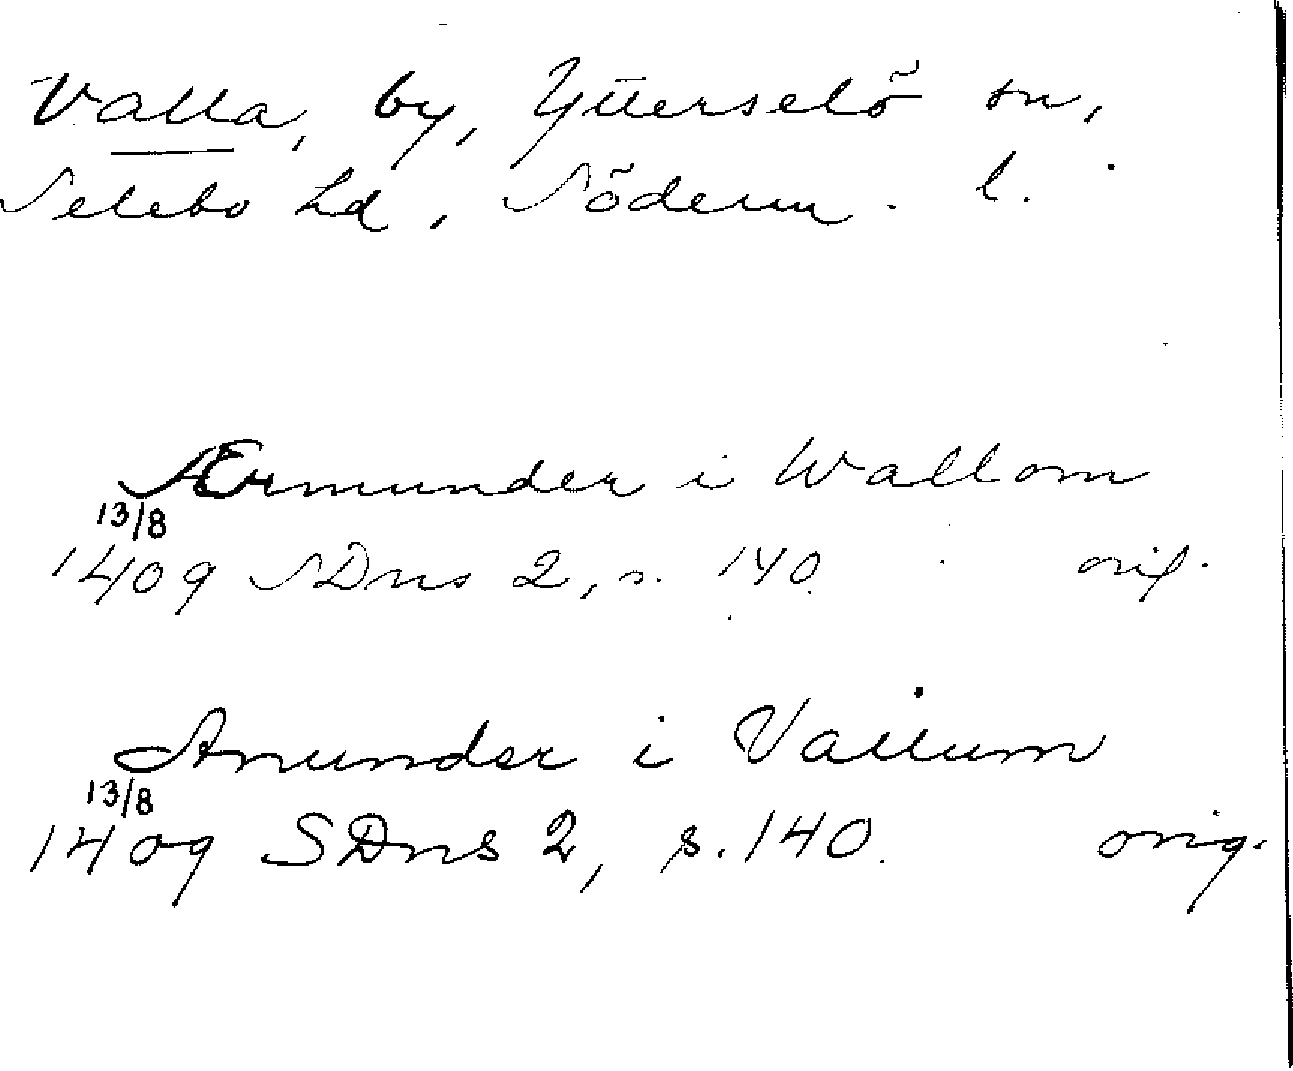 Valla, by, Ytterselö sn,
Selebo hd, Söderm. l.
Ærmunder i Wallom
13/8
1409 SDns 2, s. 140. orig.
Anunder i Vallum
13/8
1409 SDns 2, s. 140. orig.